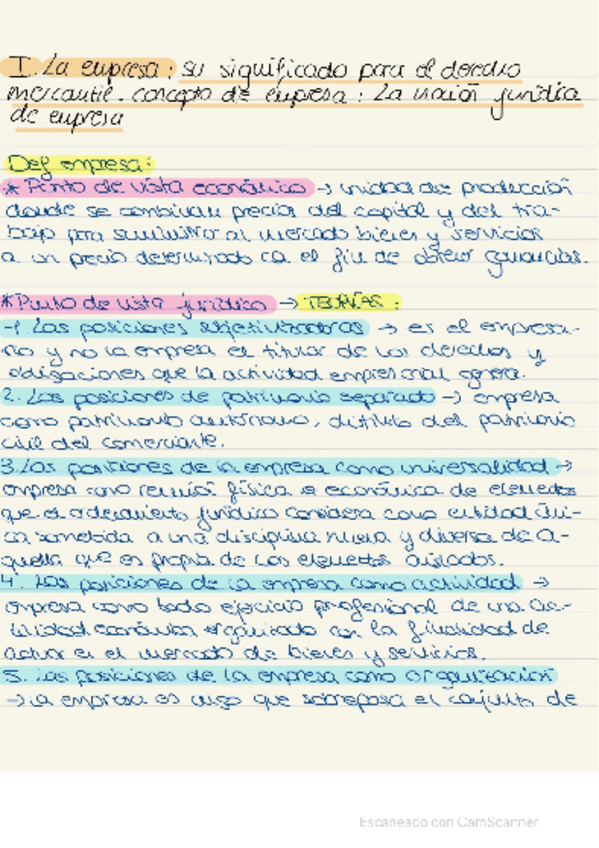 I. La empresa: su significado para el derecho
mercantil. concepto de empresa: La noción jurídica
de empresa
Def empresa:
* Punto de vista económico → unidad de producción
donde se combinan precios del capital y del tra-
bajo para suministrar al mercado bienes y servicios
a un precio determinado co el fin de obtener ganancias.
* Punto de vista jurídico → TEORÍAS:
-1 Las posiciones subjetivizadoras → es el empresa-
rio y no la empresa el titular de los derechos y
obligaciones que la actividad empresarial genera.
2. Las posiciones de patrimonio separado → empresa
como patrimonio autónomo, distinto del patrimonio
civil del comerciante.
3. Las posiciones de la empresa como universalidad →
empresa como reunión física o económica de elementos
que el ordenamiento jurídico considera como entidad úni-
ca sometida a una disciplina nueva y diversa de a-
quella que es propia de los elementos aislados.
4. Las posiciones de la empresa como actividad →
empresa como todo ejercicio profesional de una ac-
tividad económica organizada con la finalidad de
actuar en el mercado de bienes y servicios.
5. Las posiciones de la empresa como organización
→ la empresa es algo que sobrepasa el conjunto de
Escaneado con CamScanner